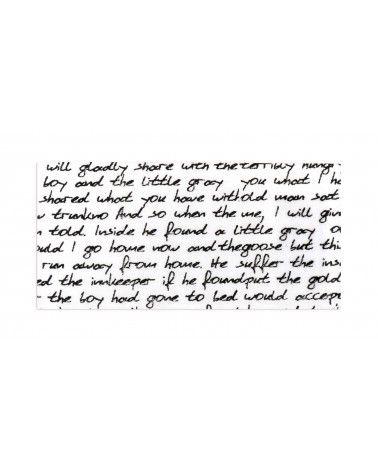 will gladly share with the terribly hungr
boy and the little gray you what I ha
shared what you have withold man sat
And so when the me, I will giv
n told. Inside he found a little gray
ould I go home now and thegoose but thi
run away from home. He suffer the ins
ed the innkeeper if he foundput the gold
the boy had gone to bed would accep